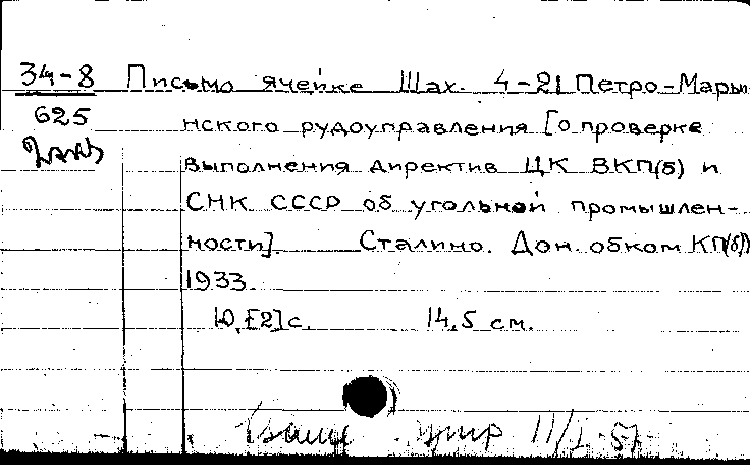 34-8 Письмо ячейке Шах. 4-21 Петро-Марьи
625 нского рудоуправления [о проверке
выполнения директив ЦК ВКП(б) и
СНК СССР об угольной промышлен-
ности]. Сталино. Дон. обком КП(б)
1933.
10, [2] с. 14,5 см.
11/I-57